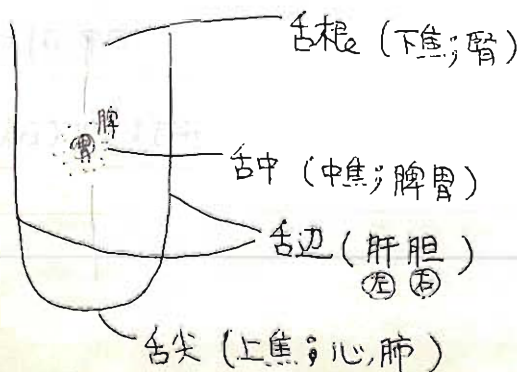 舌根 (下焦;腎)
脾
胃
舌中 (中焦;脾胃)
舌边 (肝胆)
左 右
舌尖 (上焦;心,肺)